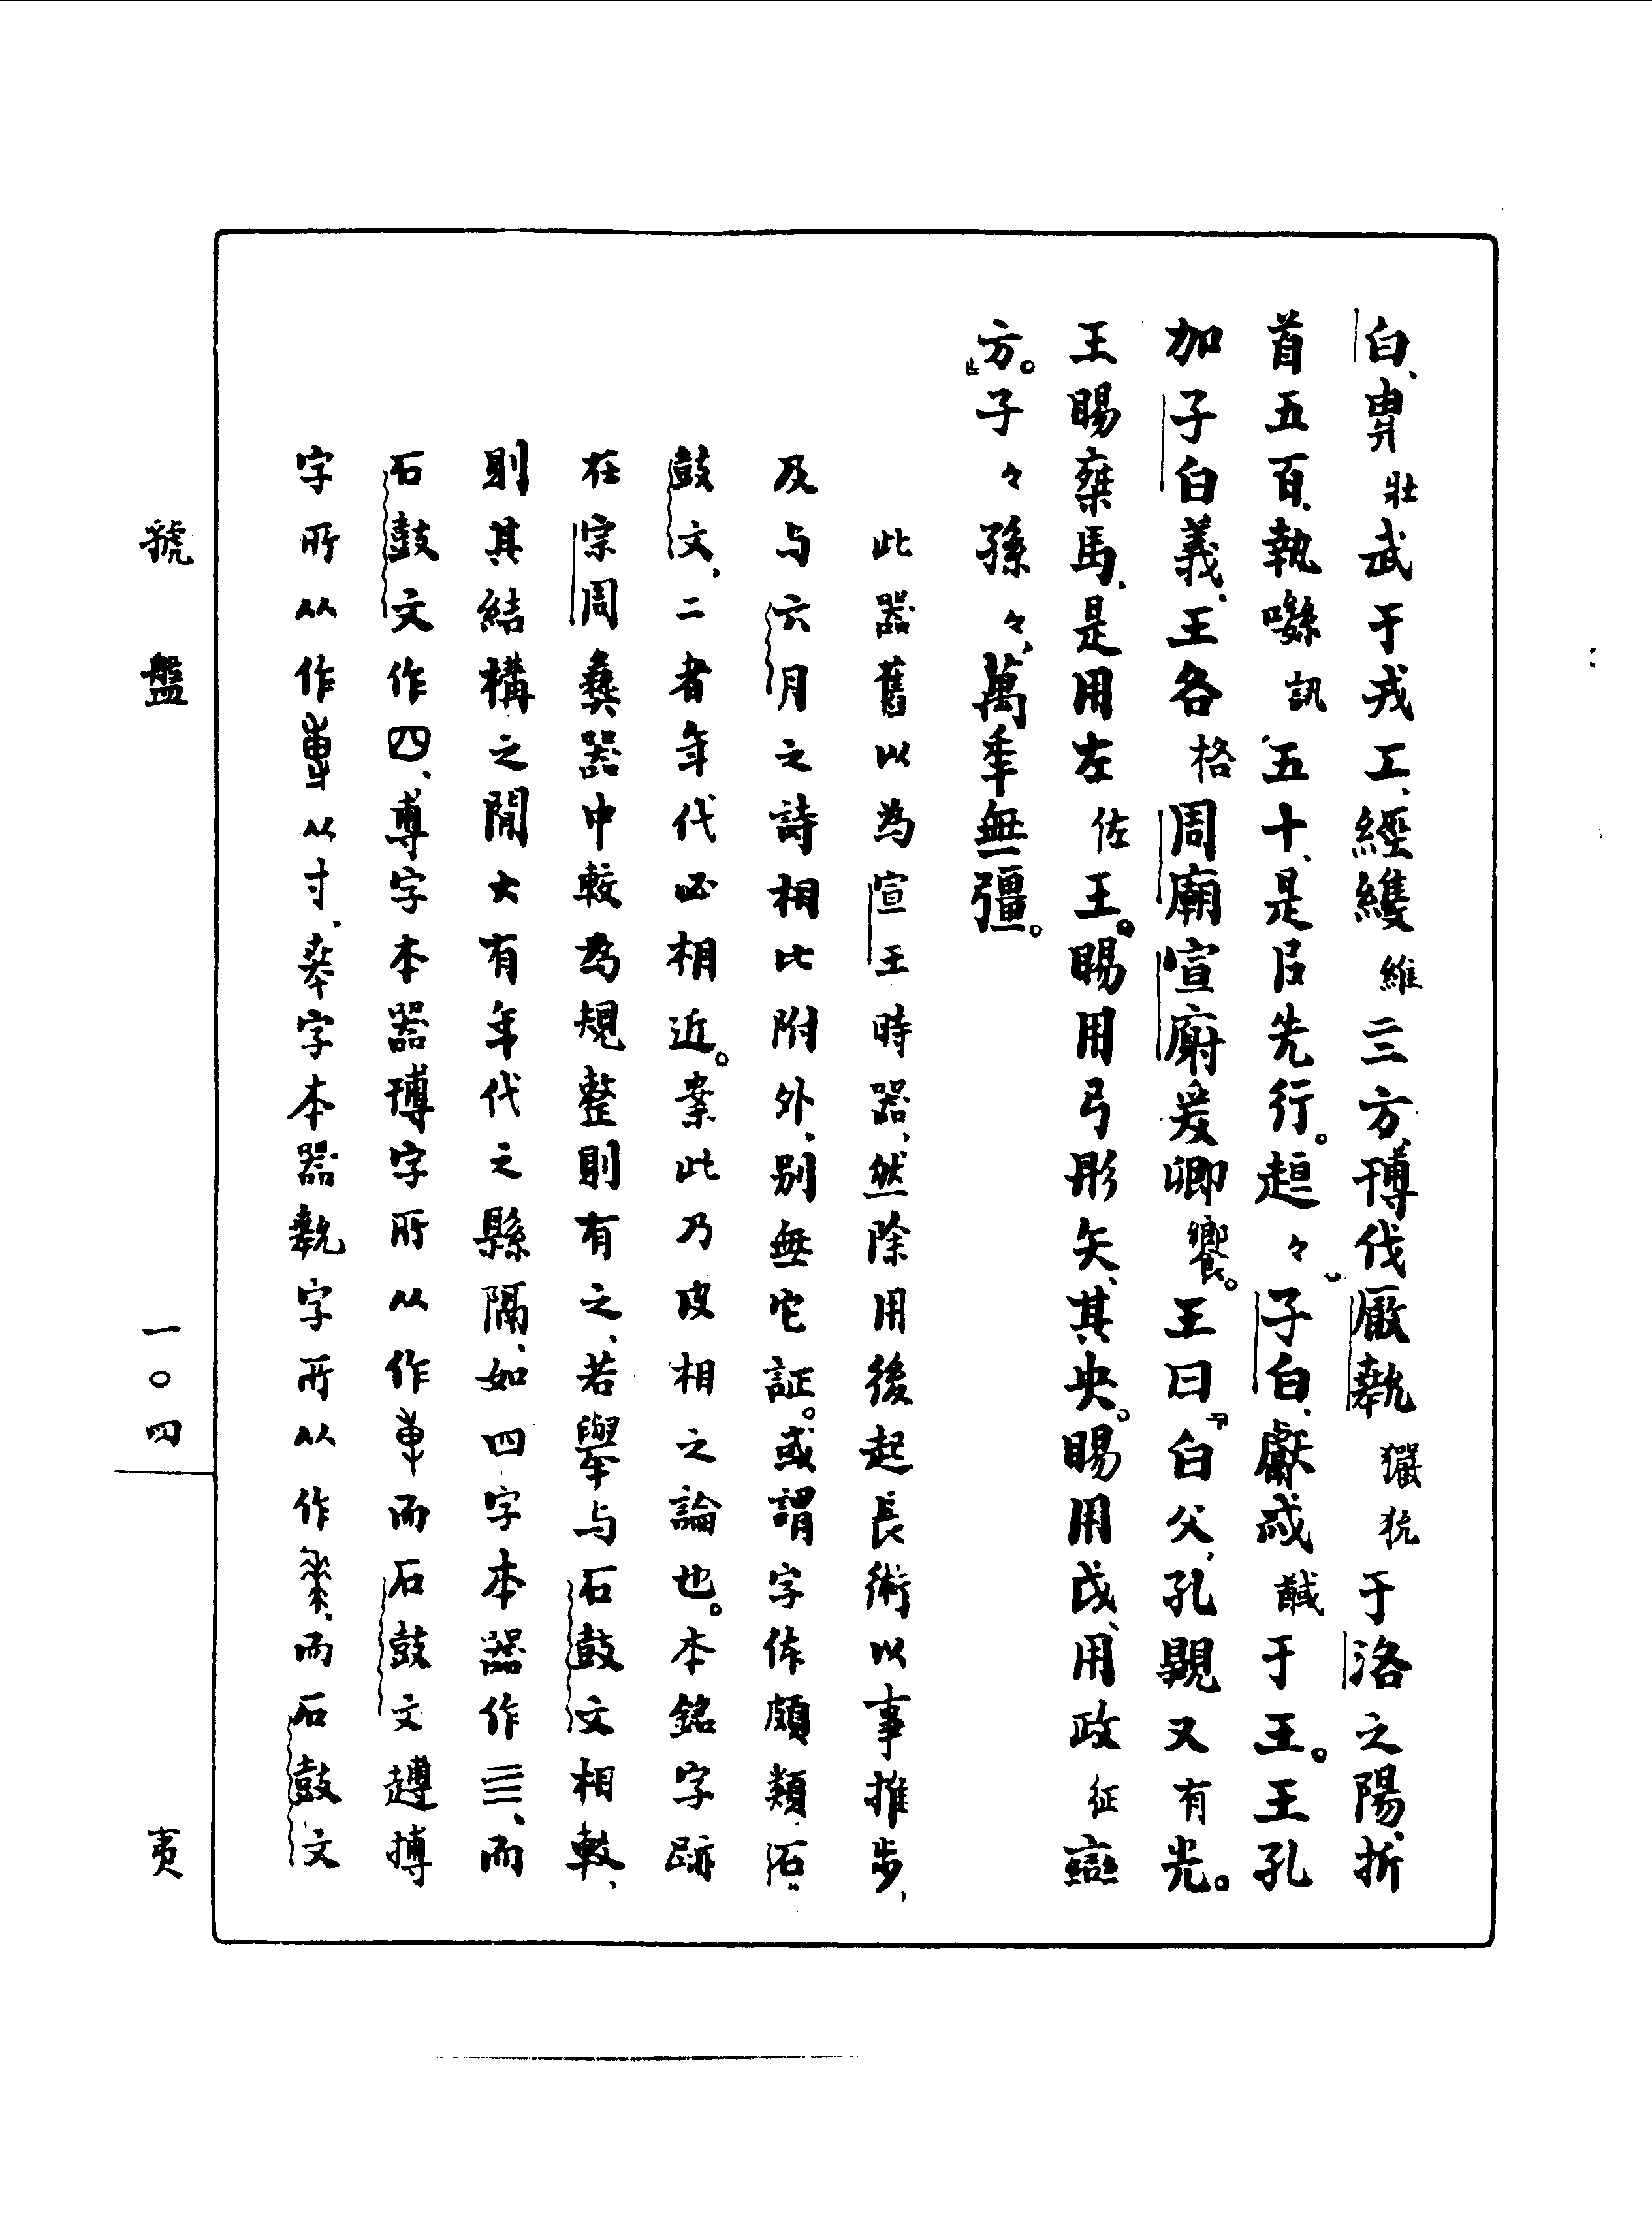 白、𤰈壯武于戎工、經縷維三方、博伐厰𤞤玁狁于洛之陽、折
首五百、執嚥訊五十、是㠯先行。趄々子白、獻戒馘于王。王孔
加子白義、王各格周廟宣廚爰卿饗。王曰『白父、孔覭又有光。
王賜椉馬、是用左佐王。賜用弓彤矢、其央。賜用戉、用政征䜌
方。』子々孫々、萬年無疆。
此器舊以為宣王時器、然除用後起長術以事推步、
及与六月之詩相比附外、別無它証。或謂字体頗類石
鼓文、二者年代必相近。案此乃皮相之論也。本銘字跡
在宗周彝器中較為規整則有之、若舉与石鼓文相較、
則其結構之間大有年代之縣隔、如四字本器作亖、而
石鼓文作四、専字本器博字所从作而石鼓文趲搏
字所从作从寸、𠦪字本器𤞤字所从作、而石鼓文
虢盤 一〇四 夷